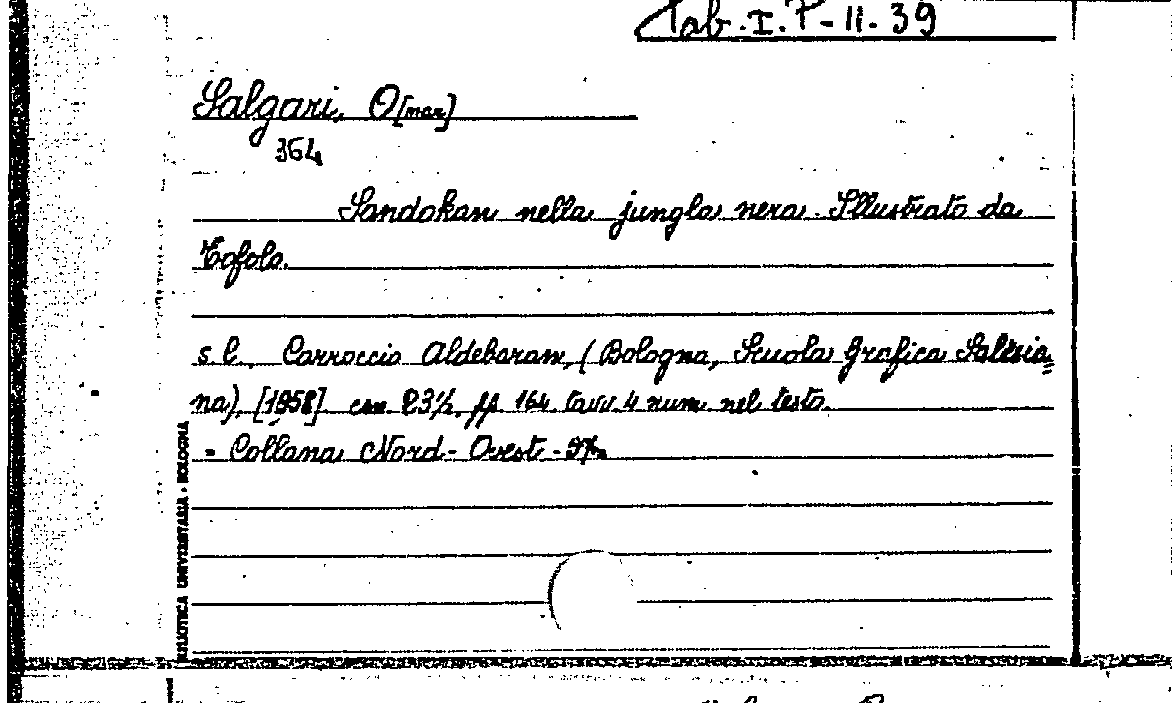 Tab. I. P - II. 39
Salgari, O[mar]
364
Sandokan nella jungla nera. Illustrato da
Tofolo.
s. l., Carroccio Aldebaran, (Bologna, Scuola Grafica Salesia
na), [1958]. cm 23½, pp 164. tavv 4 num. nel testo.
- Collana Nord-Ovest -
BIBLIOTECA UNIVERSITARIA - BOLOGNA